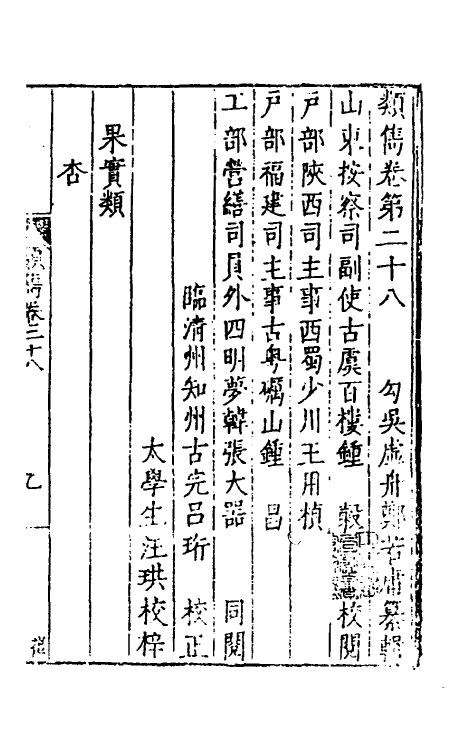 類雋卷第二十八 勾吳虛舟鄭若庸纂輯
山東按察司副使古虞百樓鍾 穀 校閱
户部陝西司主事西蜀少川王用楨
户部福建司主事古粤礪山鍾 昌
工部營繕司員外四明夢韓張大器 同閱
臨濟州知州古完呂珩 校正
太學生汪珙校梓
果實類
杏
類雋卷二十八